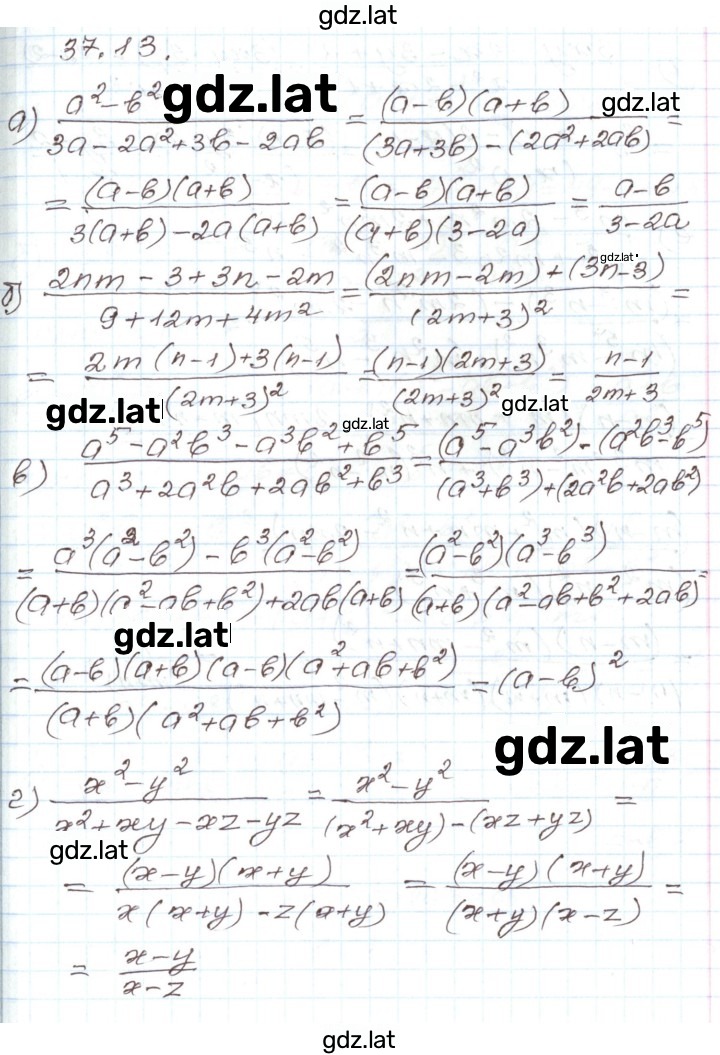 gdz.lat
37.13.
gdz.lat
gdz.lat
а) (a² - b²)/(3a - 2a² + 3b - 2ab) = ((a-b)(a+b))/((3a+3b) - (2a²+2ab)) =
= ((a-b)(a+b))/(3(a+b) - 2a(a+b)) = ((a-b)(a+b))/((a+b)(3-2a)) = (a-b)/(3-2a)
gdz.lat
б) (2nm - 3 + 3n - 2m)/(9 + 12m + 4m²) = ((2nm - 2m) + (3n - 3))/((2m+3)²) =
= (2m(n-1) + 3(n-1))/((2m+3)²) = ((n-1)(2m+3))/((2m+3)²) = (n-1)/(2m+3)
gdz.lat
gdz.lat
gdz.lat
в) (a⁵ - a²b³ - a³b² + b⁵)/(a³ + 2a²b + 2ab² + b³) = ((a⁵ - a³b²) - (a²b³ - b⁵))/((a³+b³) + (2a²b + 2ab²))
= (a³(a² - b²) - b³(a² - b²))/((a+b)(a² - ab + b²) + 2ab(a+b)) = ((a² - b²)(a³ - b³))/((a+b)(a² - ab + b² + 2ab)) =
gdz.lat
= ((a-b)(a+b)(a-b)(a² + ab + b²))/((a+b)(a² + ab + b²)) = (a-b)²
gdz.lat
г) (x² - y²)/(x² + xy - xz - yz) = (x² - y²)/((x² + xy) - (xz + yz)) =
gdz.lat
= ((x-y)(x+y))/(x(x+y) - z(x+y)) = ((x-y)(x+y))/((x+y)(x-z)) =
= (x-y)/(x-z)
gdz.lat